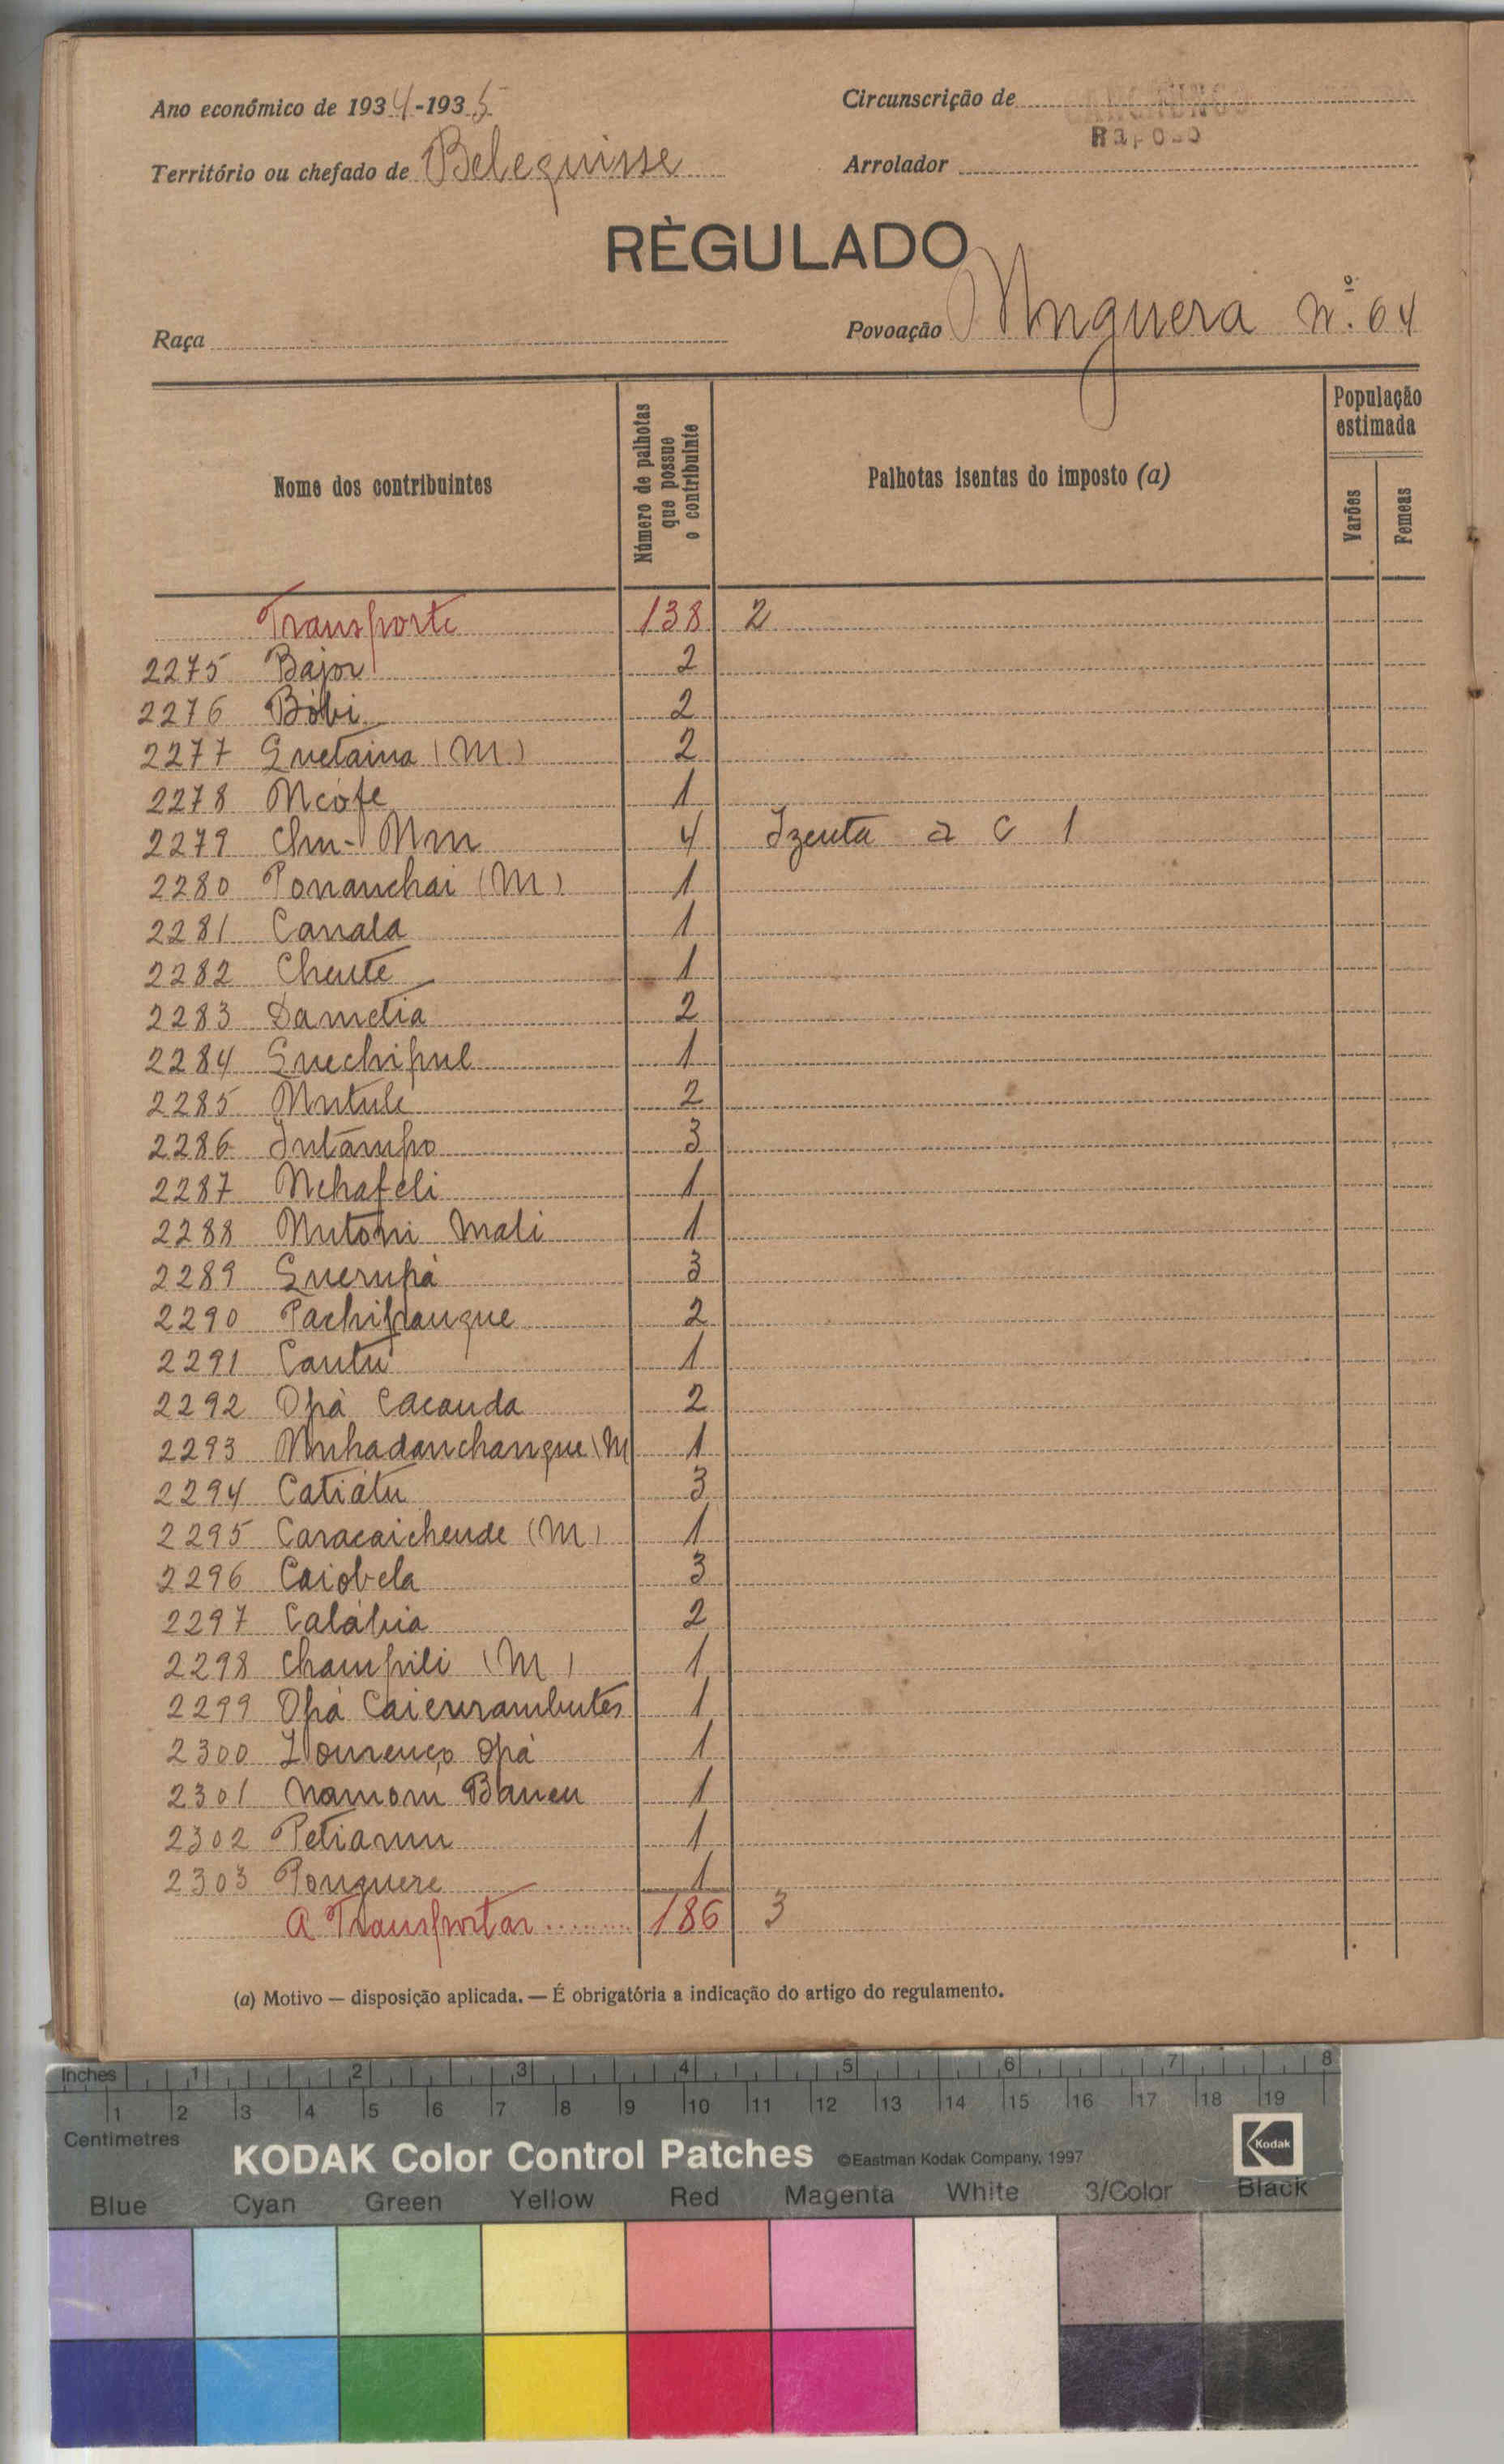 Ano económico de 1934-1935
Circunscrição de CANCHUNGO
Território ou chefado de Belequisse
Arrolador Raposo
RÈGULADO
Raça
Povoação Unguera nº. 64
Nome dos contribuintes
Número de palhotas que possue o contribuinte
Palhotas isentas do imposto (a)
População estimada
Varões
Femeas
Transporte 138 2
2275 Bajor 2
2276 Bóbi 2
2277 Quetaina (M) 2
2278 Ncófe 1
2279 Chu- 4 Izenta a c 1
2280 Ponanchai (M) 1
2281 Canala 1
2282 Cheute 1
2283 Dametia 2
2284 Quechipul 1
2285 2
2286 Intâmpo 3
2287 Nchafeli 1
2288 Mali 1
2289 Querupá 3
2290 Pachifrangue 2
2291 Cantu 1
2292 Opá Cacanda 2
2293 (M 1
2294 Catiátu 3
2295 Caracaichende (M) 1
2296 Caiobela 3
2297 Calábia 2
2298 Champili (M) 1
2299 Opá 1
2300 Lourenço Opá 1
2301 Namoni 1
2302 Petianu 1
2303 Ponguere 1
A Transportar ........ 186 3
(a) Motivo — disposição aplicada. — É obrigatória a indicação do artigo do regulamento.
Inches 1 2 3 4 5 6 7 8
1 2 3 4 5 6 7 8 9 10 11 12 13 14 15 16 17 18 19
Centimetres
KODAK Color Control Patches ©Eastman Kodak Company, 1997 Kodak
Blue Cyan Green Yellow Red Magenta White 3/Color Black